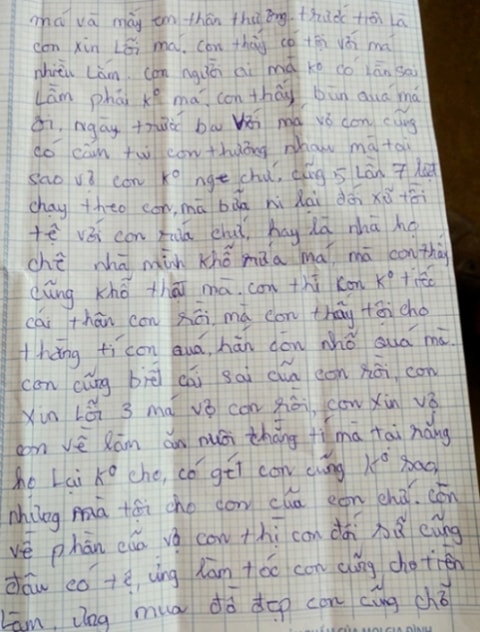 má và mấy em thân thương. trước tiên là
con xin lỗi má. con thấy có tội với má
nhiều lắm. con người ai mà k⁰ có lần sai
lầm phải k⁰ má. con thấy bùn quá má
ơi. ngày trước ba với má vợ con cũng
có căn tú con thương nhau mà tại
sao vợ con k⁰ nge chứ, cũng 5 lần 7 lượt
chạy theo con, mà bữa ni lại đối xử tồi
tệ với con rứa chứ, hay là nhà họ
chê nhà mình khổ rứa má, mà con thấy
cũng khổ thật mà. con thì con k⁰ tiếc
cái thân con rồi, mà con thấy tội cho
thằng tí con quá, hắn còn nhỏ quá mà.
con cũng biết cái sai của con rồi, con
xin lỗi 3 má vợ con rồi, con xin vợ
con về làm ăn nuôi thằng tí mà tại răng
họ lại k⁰ cho, có gét con cũng k⁰ sao
nhưng mà tội cho con của con chứ. còn
về phần của vợ con thì con đối xử cũng
đâu có tệ, ưng làm tóc con cũng cho tiền
làm, ưng mua đồ đẹp con cũng chở